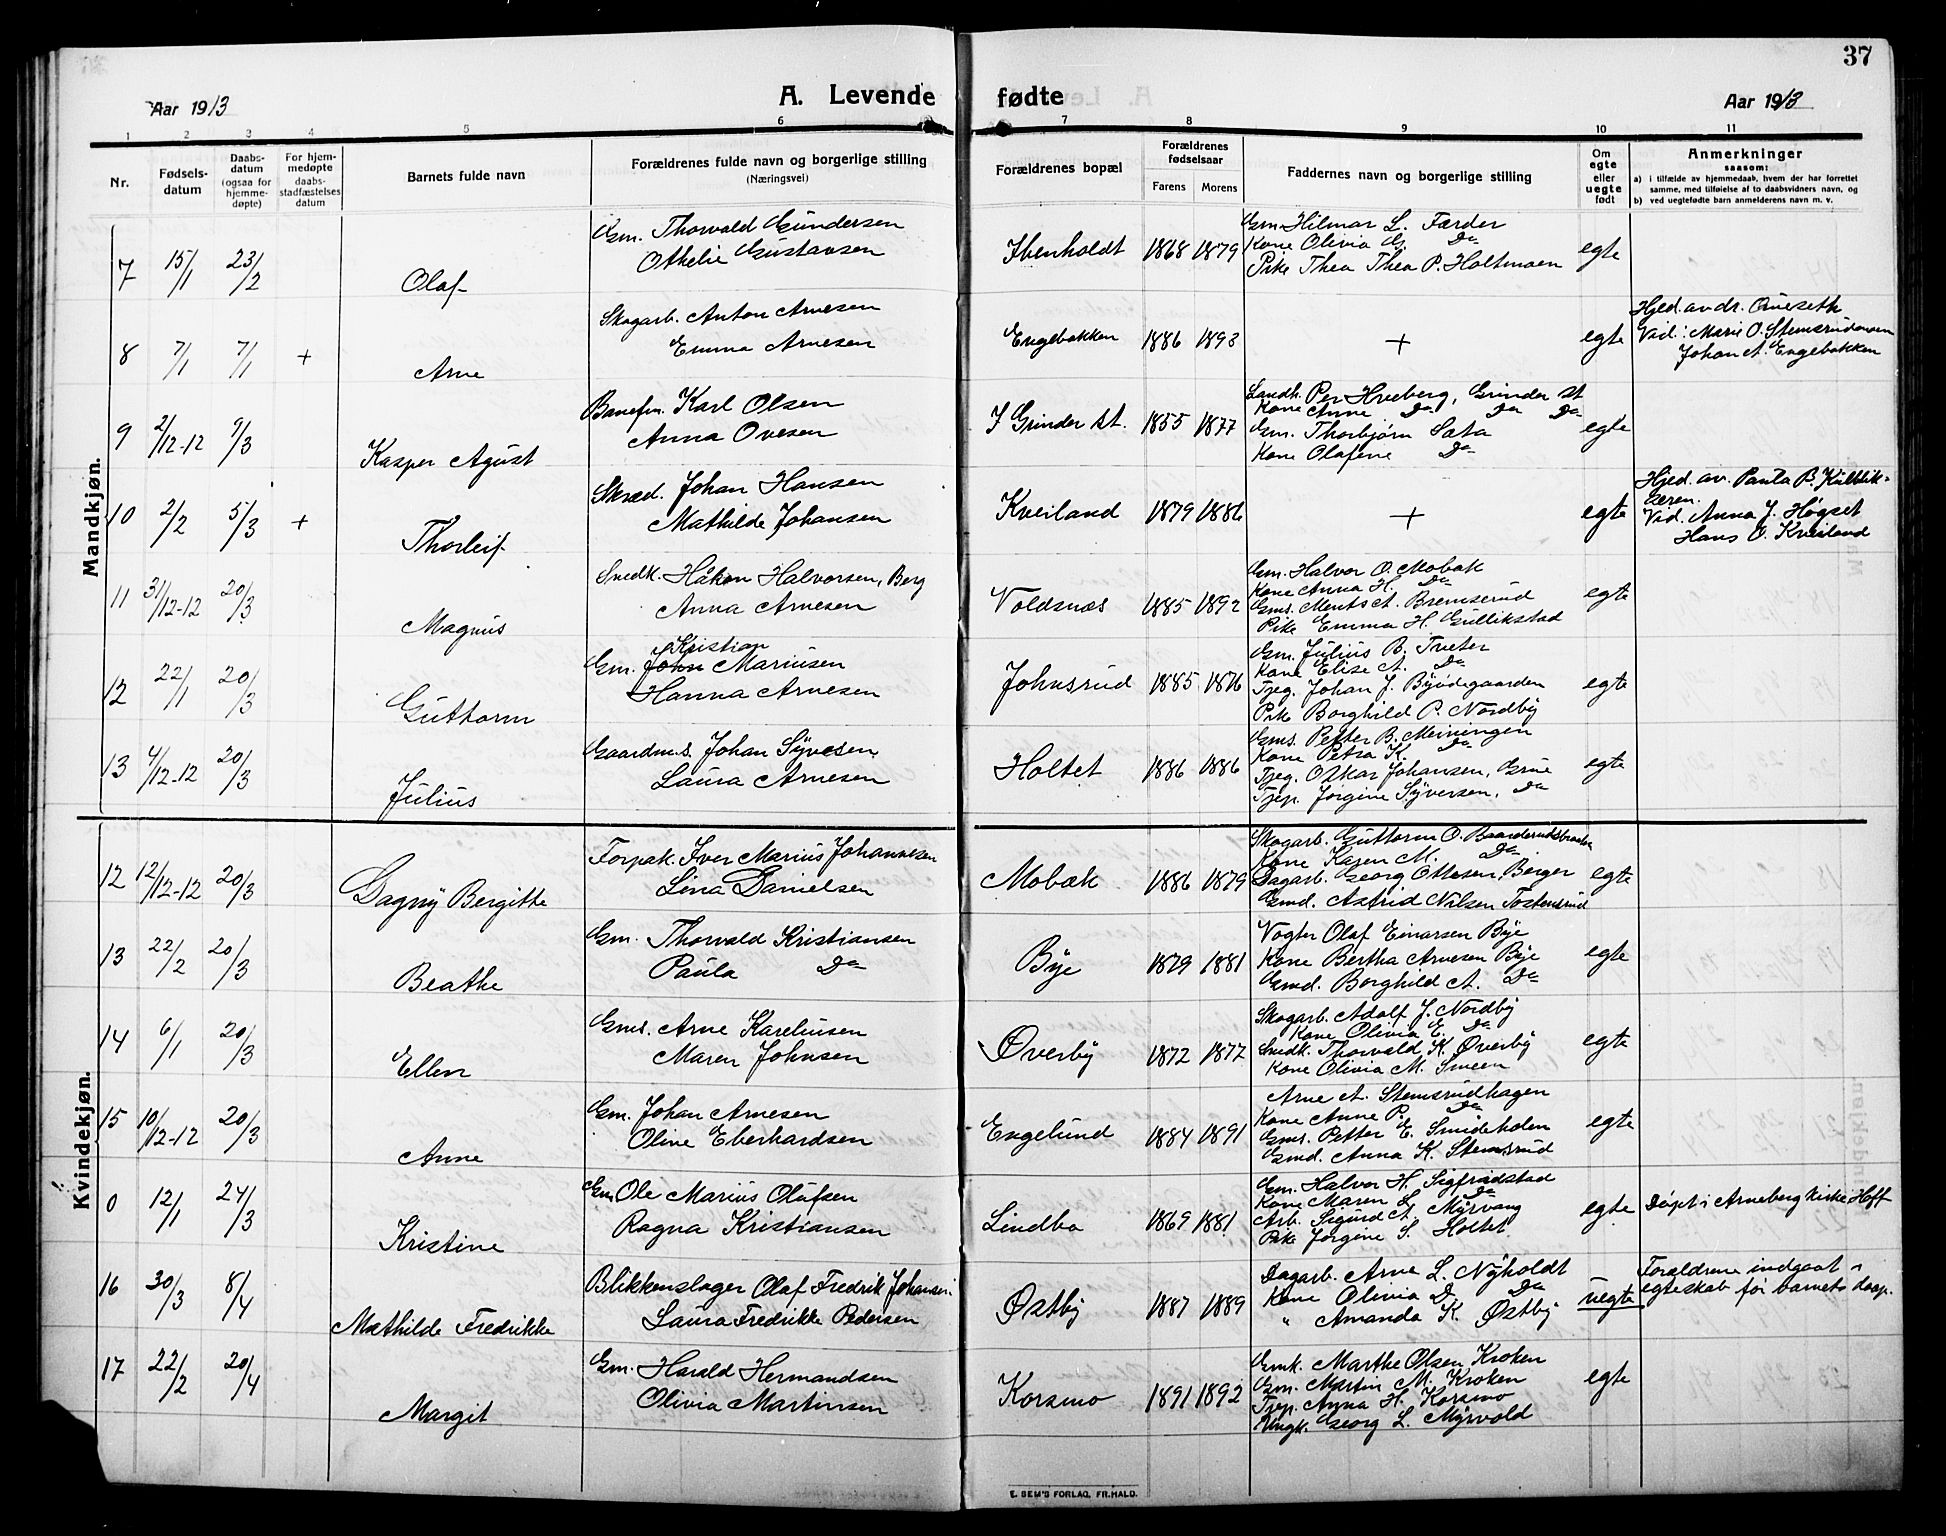 37
Aar 1913
A. Levende fødte
Aar 1913
1 2 3 4 5 6 7 8 9 10 11
Nr.
Fødsels-
datum
Daabs-
datum
(ogsaa for
hjemme-
døpte)
For hjem-
medøpte
daabs-
stadfæstelses
datum
Barnets fulde navn
Forældrenes fulde navn og borgerlige stilling
(Næringsvei)
Forældrenes bopæl
Forældrenes
fødselsaar
Farens Morens
Faddernes navn og borgerlige stilling
Om
egte
eller
uegte
født
Anmerkninger
saasom:
a) i tilfælde av hjemmedaab, hvem der har forrettet
samme, med tilføielse af to daabsvidners navn, og
b) ved uegtefødte barn anmelderens navn m. v.
Mandkjøn.
7 15/1 23/2 Olaf
Gm. Thorvald Gundersen
Othelie Gustavsen
Ibenholdt 1868 1879
Gm. Hilmar L. Færder
Kone Olivia G. Do
Pike Thea Thea P. Holtmoen
egte
8 7/1 7/1 + Arne
Skogarb. Anton Arnesen
Emma Arnesen
Engebakken 1886 1893
+
egte
Hjed. av dr. Queseth
Vid: Marie O. Stemsrudmoen
Johan A. Engebakken
9 2/12-12 9/3 Kasper Agust
Banefm. Karl Olsen
Anna Ovesen
I Grinder st. 1855 1877
Landh. Per Hveberg, Grinder st
Kone Anne Do Do Do
Gm. Thorbjørn Sata
Kone Olafine Do
egte
10 2/2 5/3 + Thorleif
Skræd. Johan Hansen
Mathilde Johansen
Kveiland 1879 1886
+
egte
Hjed. av. Paula B. Kulblik-
Vid. Anna J. Høgset
Hans O. Kveiland
11 31/12-12 20/3 Magnus
Snedk. Håkon Halvorsen, Berg
Anna Arnesen
Voldsnæs 1885 1892
Gm. Halvor O. Mobæk
Kone Anna H. Do
Gms. Ments A. Bremserud
Pike Emma H. Gullikstad
egte
12 22/1 20/3 Guttorm
Kristian
Gm. John Mariusen
Hanna Arnesen
Johnsrud 1885 1876
Gm. Julius B. Tveter
Kone Elise A. Do
Tjeg. Johan J. Byødegaarden
Pike Borghild P. Nordby
egte
13 4/12-12 20/3 Julius
Gaardm.s. Johan Syvesen
Laura Arnesen
Holtet 1886 1886
Gms. Petter B. Meiningen
Kone Petra K. Do
Tjeg. Oskar Johansen, Grue
Tjep. Jørgine Syversen, Do
egte
Kvindekjøn.
12 12/12-12 20/3 Dagny Bergitte
Forpak. Iver Marius Johannesen
Lina Danielsen
Mobæk 1886 1879
Skogarb. Guttorm O. Baarderudsbraaten
Kone Kajen M. Do
Dagarb. Georg Ottesen, Berger
Gmd. Astrid Nilsen Tostensrud
egte
13 22/2 20/3 Beathe
Gm. Thorvald Kristiansen
Paula Do
Bye 1879 1881
Vogter Olaf Einarsen Bye
Kone Bertha Arnesen Bye
Gmd. Borghild A. Do
egte
14 6/1 20/3 Ellen
Gms. Arne Kareliusen
Maren Johnsen
Øverby 1872 1877
Skogarb. Adolf J. Nordby
Kone Olivia E. Do
Snedk. Thorvald K. Øverby
Kone Olivia M. Smeen
egte
15 10/12-12 20/3 Anne
Gm. Johan Arnesen
Oline Eberhardsen
Engelund 1884 1891
Arne A. Stemsrudhagen
Kone Anne P. Do
Gms. Petter E. Smideholen
Gmd. Anna K. Stemsrud
egte
0 12/1 24/3 Kristine
Gm Ole Marius Olufsen
Ragna Kristiansen
Lindbo 1869 1881
Gm. Halvor H. Sigfridstad
Kone Maren L. Do
Arb. Sigurd A. Myrvang
Pike Jørgine S. Holtet
egte
Døpt i Arneberg kirke, Hoff
16 30/3 8/4 Mathilde Fredrikke
Blikkenslager Olaf Fredrik Johansen
Laura Fredrikke Pedersen
Østby 1887 1889
Dagarb. Arne L. Nyholdt
Kone Olivia D. Do
" Amanda K. Østby
uegte
Forældrene indgaat i
egteskab før barnets daap.
17 22/2 20/4 Margit
Gm. Harald Hermandsen
Olivia Martinsen
Korsmo 1891 1892
Gmk. Marthe Olsen Kroken
Gm. Martin M. Kroken
Tjep. Anna H. Korsmo
Ungk. Georg L. Myrvold
egte
E. SEM'S FORLAG, FR.HALD.